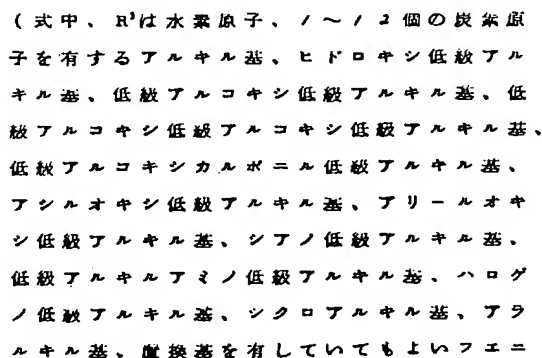 (式中、R³は水素原子、1〜12個の炭素原
子を有するアルキル基、ヒドロキシ低級アル
キル基、低級アルコキシ低級アルキル基、低
級アルコキシ低級アルコキシ低級アルキル基、
低級アルコキシカルボニル低級アルキル基、
アシルオキシ低級アルキル基、アリールオキ
シ低級アルキル基、シアノ低級アルキル基、
低級アルキルアミノ低級アルキル基、ハロゲ
ノ低級アルキル基、シクロアルキル基、アラ
ルキル基、置換基を有していてもよいフエニ